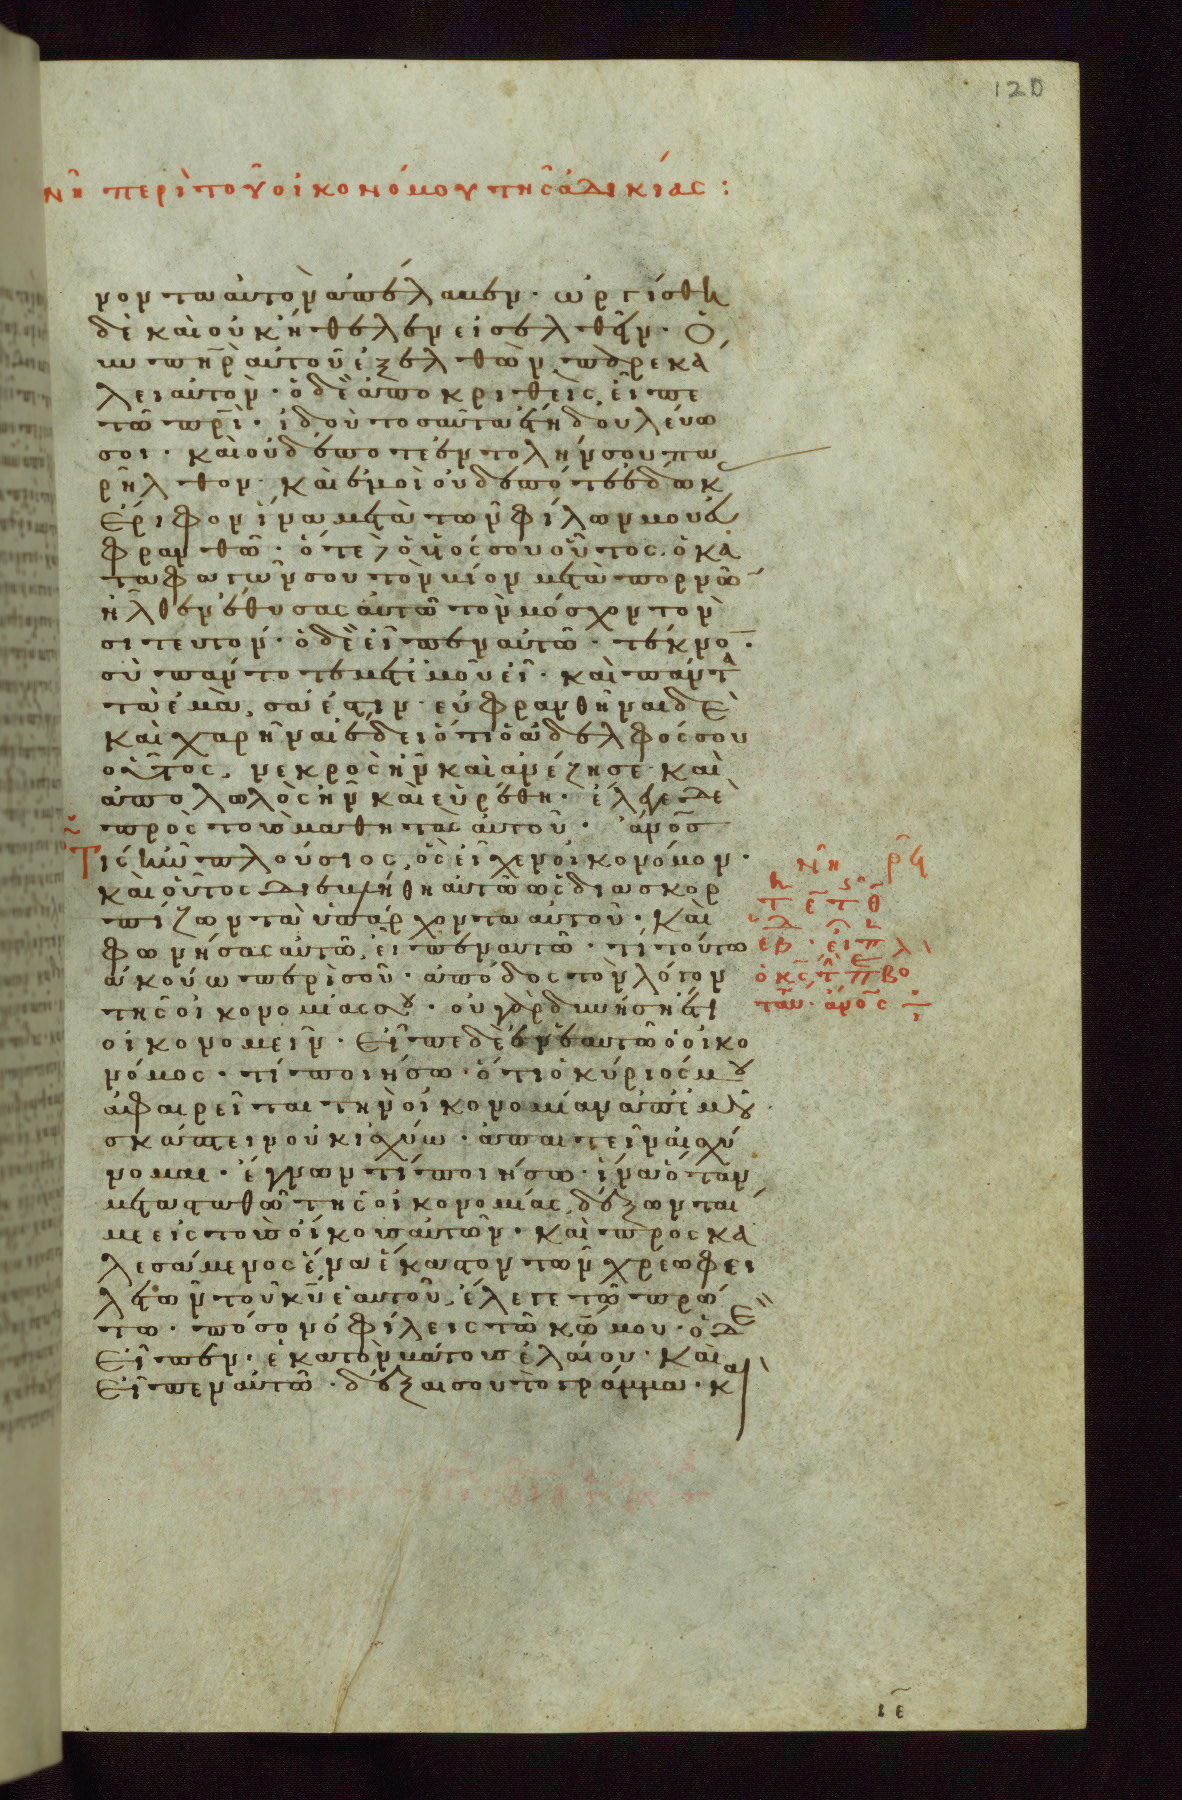 120
νη περὶ τοῦ οἰκονόμου τῆς ἀδικίας :
νοντα αὐτὸν ἀπέλαβεν · ὠργίσθη
δὲ καὶ οὐκ ἤθελεν εἰσελθεῖν · Ὁ
οὖν πηρ αὐτοῦ ἐξελθὼν παρεκά
λει αὐτὸν · ὁ δὲ ἀποκριθεὶς, εἶπε
τῶ πρὶ · ἰδοὺ τοσαῦτα ἔτη δουλεύω
σοι · καὶ οὐδέποτε ἐντολήν σου πα
ρῆλθον · καὶ ἐμοὶ οὐδέποτε ἔδωκ
ἔριφον ἵνα μετὰ τῶν φίλων μου εὐ
φρανθῶ · ὅτε δὲ ὁ υἱός σου οὗτος ὁ κα
ταφαγών σου τὸν βίον μετὰ πορνῶ
ἦλθεν ἔθυσας αὐτῶ τὸν μόσχον τὸν
σιτευτόν · ὁ δὲ εἶπεν αὐτῶ · τέκνο ·
σὺ πάντοτε μετ' ἐμοῦ εἶ · καὶ πάντα
τὰ ἐμὰ, σά ἐστιν · εὐφρανθῆναι δὲ
καὶ χαρῆναι ἔδει ὅτι ὁ ἀδελφός σου
οὗτος, νεκρὸς ἦν καὶ ἀνέζησε · καὶ
ἀπολωλὸς ἦν καὶ εὑρέθη · ἔλεγε δὲ
πρὸς τοὺς μαθητὰς αὐτοῦ · ἄνος
Τις ἦν πλούσιος, ὃς εἶχεν οἰκονόμον ·
καὶ οὗτος διεβλήθη αὐτῶ ὡς διασκορ
πίζων τὰ ὑπάρχοντα αὐτοῦ · Καὶ
φωνήσας αὐτῶ, εἶπεν αὐτῶ · τί τοῦτο
ἀκούω περὶ σοῦ · ἀπόδος τὸν λόγον
τῆς οἰκονομίας σου · οὐ γὰρ δυνήσῃ ἔτι
οἰκονομεῖν · Εἶπε δὲ ἐν ἑαυτῶ ὁ οἰκο
νόμος · τί ποιήσω · ὅτι ὁ κύριός μου
ἀφαιρεῖται τὴν οἰκονομίαν ἀπ' ἐμοῦ ·
σκάπτειν οὐκ ἰσχύω · ἀπαιτεῖν αἰσχύ
νομαι · ἔγνων τί ποιήσω · ἵνα ὅταν
μετασταθῶ τῆς οἰκονομίας, δέξωνταί
με εἰς τοὺς οἴκους αὐτῶν · Καὶ προσκα
λεσάμενος ἕνα ἕκαστον τῶν χρεωφει
λετῶν τοῦ κυ ἑαυτοῦ, ἔλεγε τῶ πρώ
τω · πόσον ὀφείλεις τῶ κω μου · ὁ δὲ
Εἶπεν · ἑκατὸν βάτους ἐλαίου · Καὶ
Εἶπεν αὐτῶ · δέξαι σου τὸ γράμμα · κ αὶ
νη
ιε